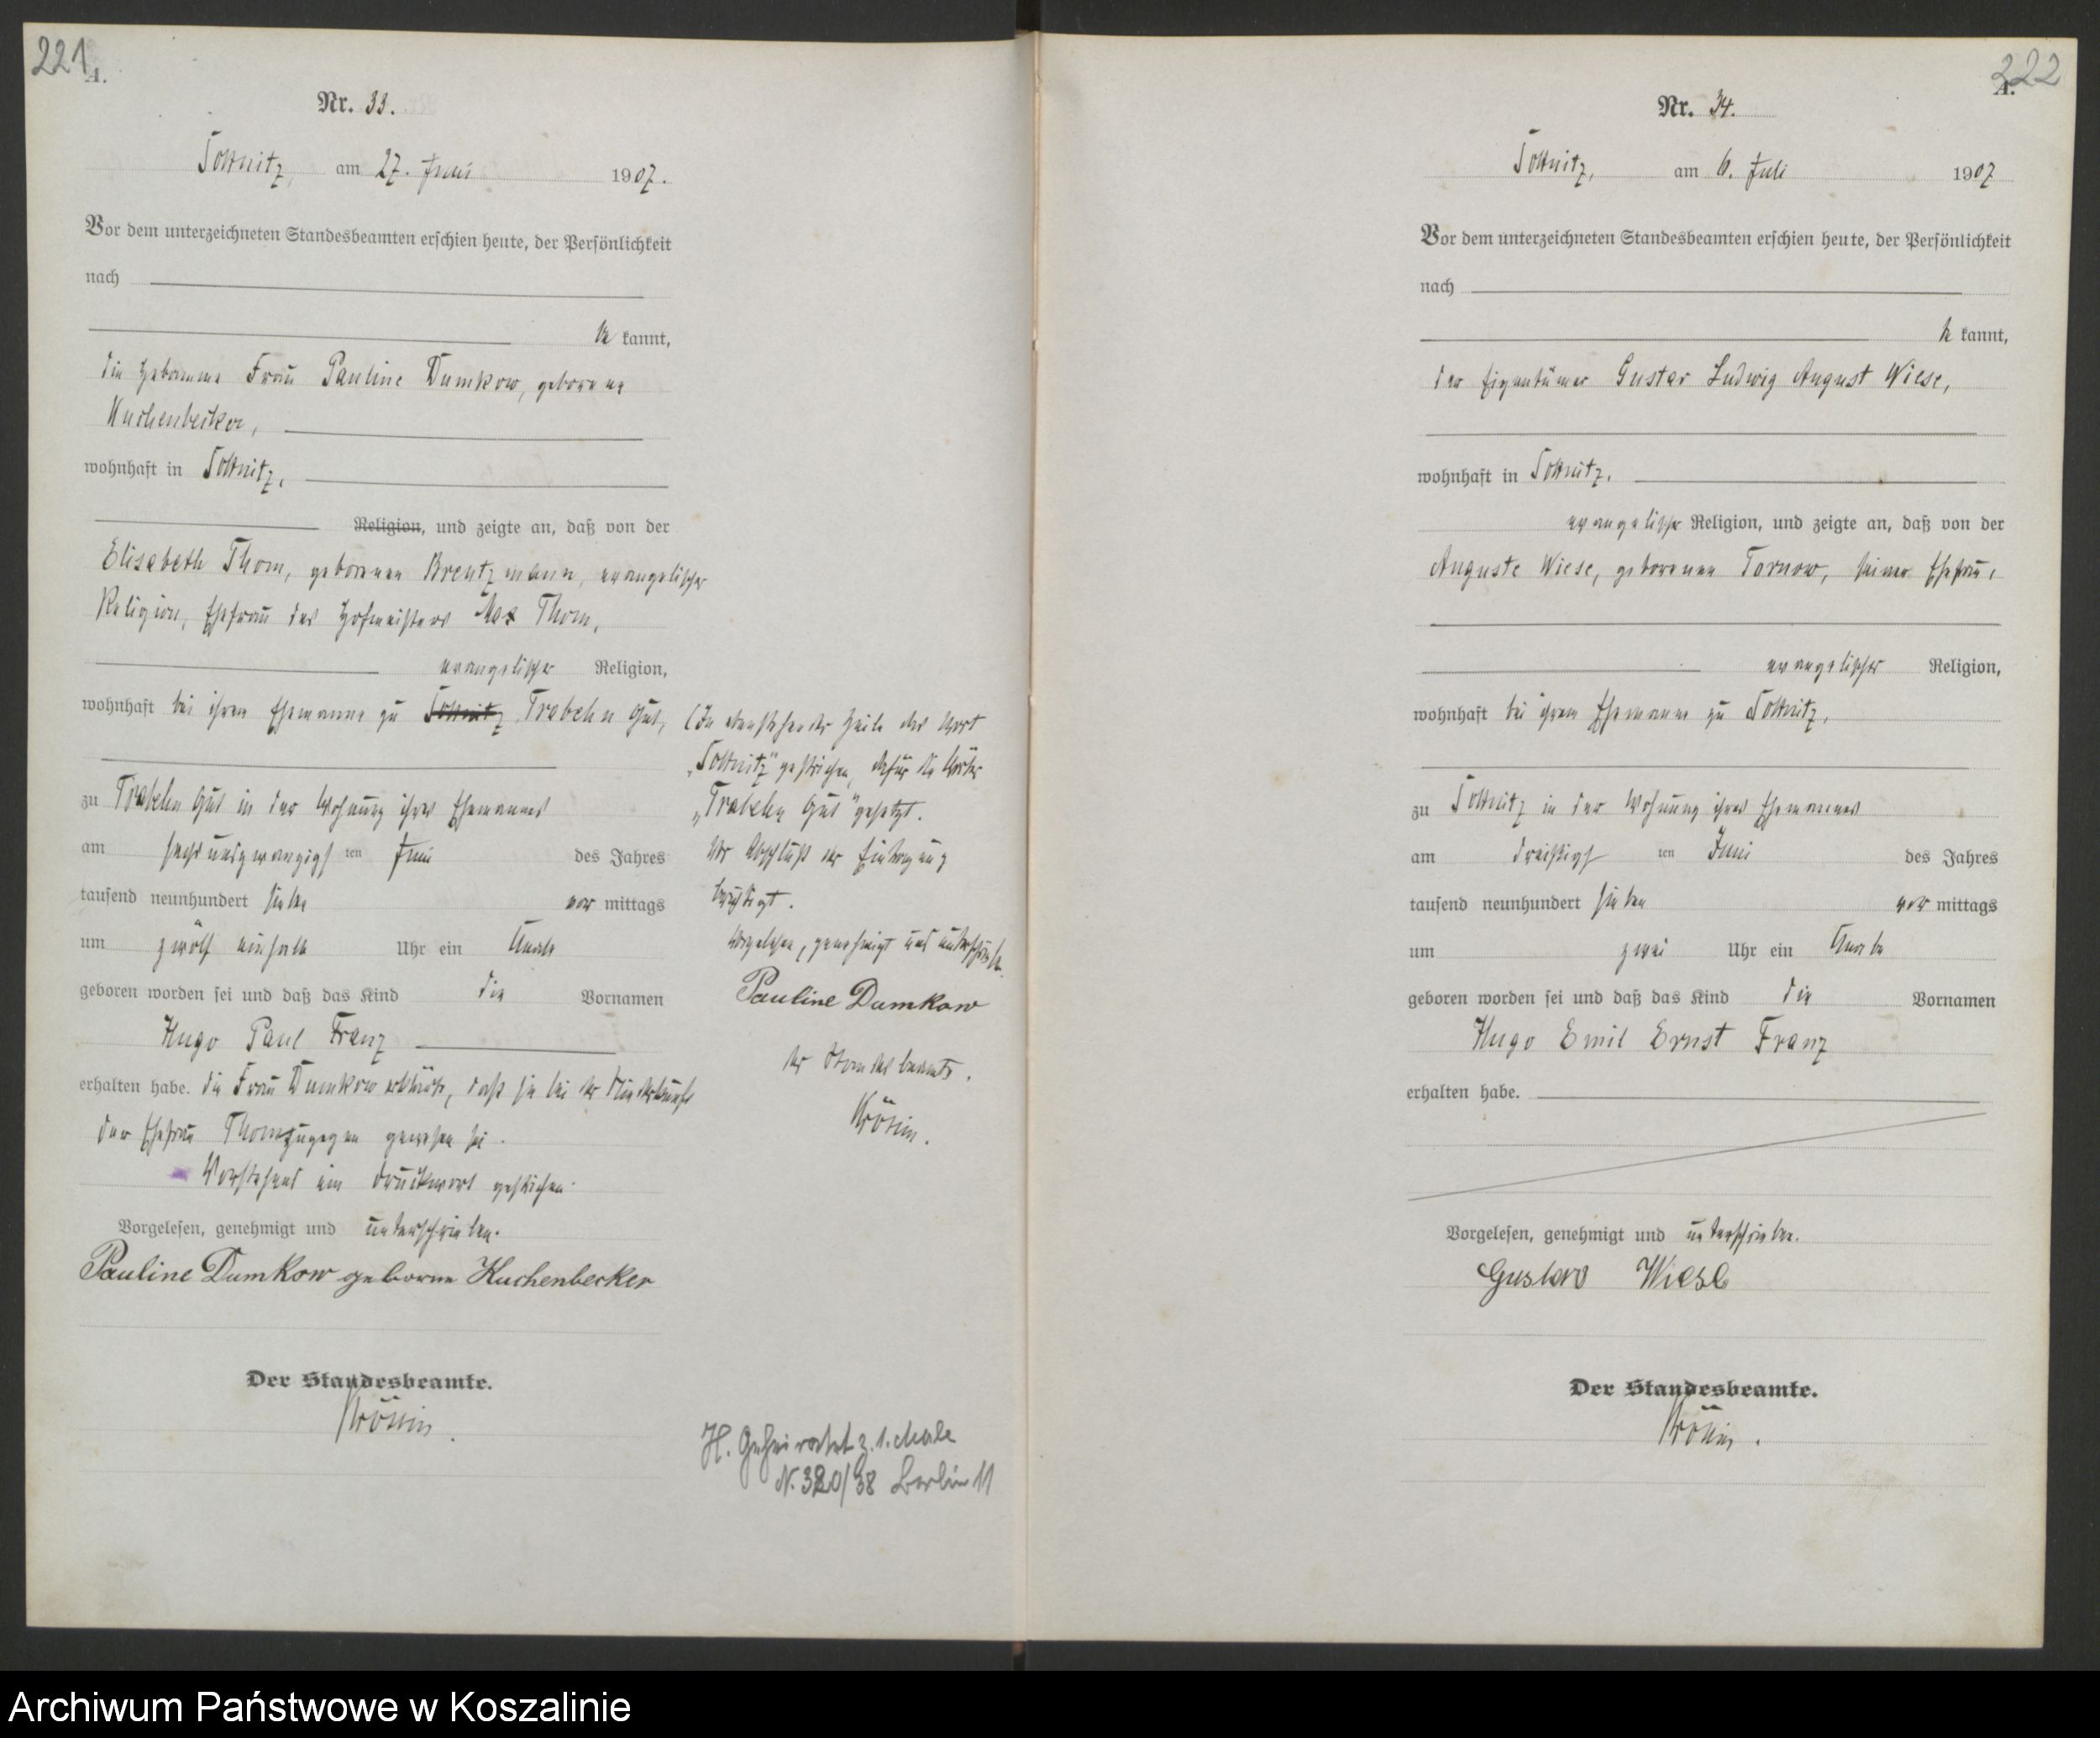 221
A.
Nr. 33.
Soltnitz, am 27. Juni 1907.
Vor dem unterzeichneten Standesbeamten erschien heute, der Persönlichkeit
nach
be kannt,
die Hebamme Frau Pauline Dumkow, geborene
Kuchenbecker,
wohnhaft in Soltnitz,
Religion, und zeigte an, daß von der
Elisabeth Thom, geborenen Brentzmann, evangelischer
Religion, Ehefrau des Hofmeisters Max Thom,
evangelischer Religion,
wohnhaft bei ihrem Ehemanne zu Soltnitz Trabehn Gut,
zu Trabehn Gut in der Wohnung ihres Ehemannes
am sechsundzwanzigsten Juni des Jahres
tausend neunhundert sieben vor mittags
um zwölf einhalb Uhr ein Knabe
geboren worden sei und daß das Kind die Vornamen
Hugo Paul Franz
erhalten habe. die Frau Dumkow erklärte, daß sie bei der Niederkunft
der Ehefrau Thom zugegen gewesen sei.
Vorstehend ein Druckwort gestrichen.
Vorgelesen, genehmigt und unterschrieben.
Pauline Dumkow geborne Kuchenbecker
Der Standesbeamte.
(In obenstehender Zeile das Wort
„Soltnitz" gestrichen, dafür die Wörter
„Trabehn Gut" gesetzt.
Vor Abschluß der Eintragung
berichtigt.
Vorgelesen, genehmigt und unterschrieben.
Pauline Dumkow
Der Standesbeamte.
H. Geheiratet z. 1. Male
N. 320/38 Berlin 11
222
A.
Nr. 34.
Soltnitz, am 6. Juli 1907
Vor dem unterzeichneten Standesbeamten erschien heute, der Persönlichkeit
nach
be kannt,
der Eigentümer Gustav Ludwig August Wiese,
wohnhaft in Soltnitz,
evangelischer Religion, und zeigte an, daß von der
Auguste Wiese, geborenen Tornow, seiner Ehefrau,
evangelischer Religion,
wohnhaft bei ihrem Ehemanne zu Soltnitz,
zu Soltnitz in der Wohnung ihres Ehemannes
am dreißigsten Juni des Jahres
tausend neunhundert sieben vor mittags
um zwei Uhr ein Knabe
geboren worden sei und daß das Kind die Vornamen
Hugo Emil Ernst Franz
erhalten habe.
Vorgelesen, genehmigt und unterschrieben.
Gustav Wiese
Der Standesbeamte.
Archiwum Państwowe w Koszalinie